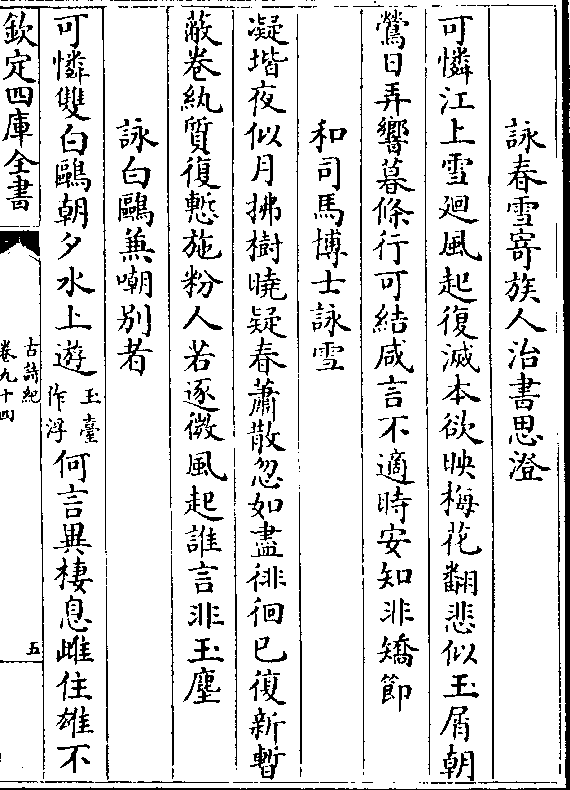 詠春雪寄族人治書思澄
可憐江上雪廻風起復滅本欲映梅花翻悲似玉屑朝
鶯日弄響暮條行可結咸言不適時安知非矯節
和司馬博士詠雪
凝堦夜似月拂樹曉疑春蕭散忽如盡徘徊已復新暫
蔽卷紈質復慙施粉人若逐微風起誰言非玉塵
詠白鷗兼嘲別者
可憐雙白鷗朝夕水上遊玉臺作浮何言異棲息雌住雄不
欽定四庫全書
古詩紀
卷九十四
五